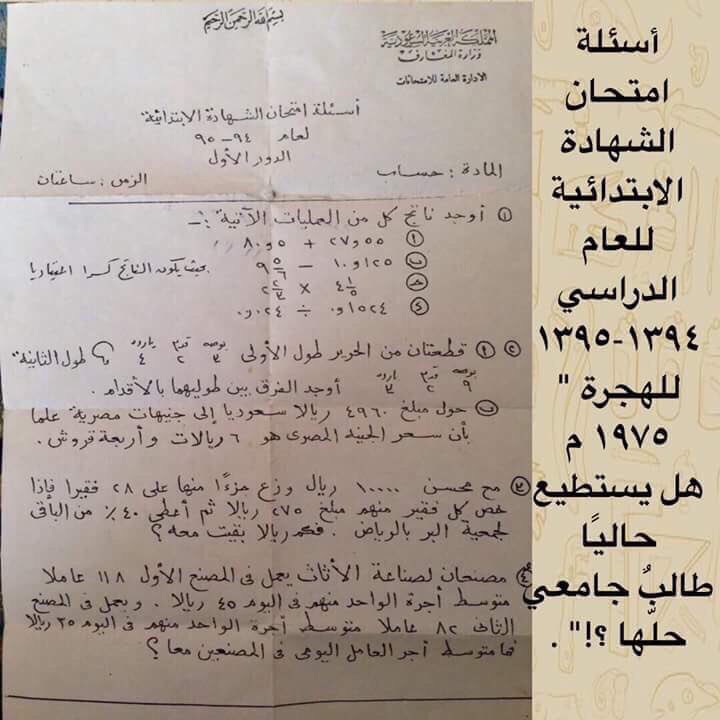 بسم الله الرحمن الرحيم
المملكة العربية السعودية
وزارة المعارف
الادارة العامة للامتحانات
أسئلة امتحان الشهادة الابتدائية
لعام ٩٤ – ٩٥
الدور الأول
المادة : حساب الزمن : ساعتان
١ أوجد ناتج كل من العمليات الآتية :-
٢ ٥٥و٢٧ + ٥و٨٠
ب ١٢٥و١٠ – ٩ ٥/٦ بحيث يكون الناتج كسرا اعتياديا
ج ٤ ١/٥ × ٢ ٢/٣
٤ ١٥٢٤و٠ ÷ ٢٤و٠
٢ ٢ قطعتان من الحرير طول الأولى بوصة ٣ قدم ٢ ياردة ٤ و طول الثانية
بوصة ٩ قدم ٢ ياردة ٣ أوجد الفرق بين طوليهما بالأقدام .
ب حول مبلغ ٤٩٦٠ ريالا سعوديا إلى جنيهات مصرية علما
بأن سعر الجنيه المصرى هو ٦ ريالات وأربعة قروش .
٣ مع محسن ١٠٠٠٠ ريال وزع جزءًا منها على ٢٨ فقيرا فإذا
خص كل فقير منهم مبلغ ٢٧٥ ريالا ثم أعطى ٤٠٪ من الباقى
لجمعية البر بالرياض . فكم ريالا بقيت معه ؟
٤ مصنعان لصناعة الأثاث يعمل فى المصنع الأول ١١٨ عاملا
متوسط أجرة الواحد منهم فى اليوم ٤٥ ريالا . و يعمل فى المصنع
الثانى ٨٢ عاملا متوسط أجرة الواحد منهم فى اليوم ٣٥ ريالا
فما متوسط أجر العامل اليومى فى المصنعين معا ؟
أسئلة
امتحان
الشهادة
الابتدائية
للعام
الدراسي
١٣٩٤-١٣٩٥
للهجرة "
١٩٧٥ م
هل يستطيع
حاليًا
طالبٌ جامعي
حلّها ؟!" .